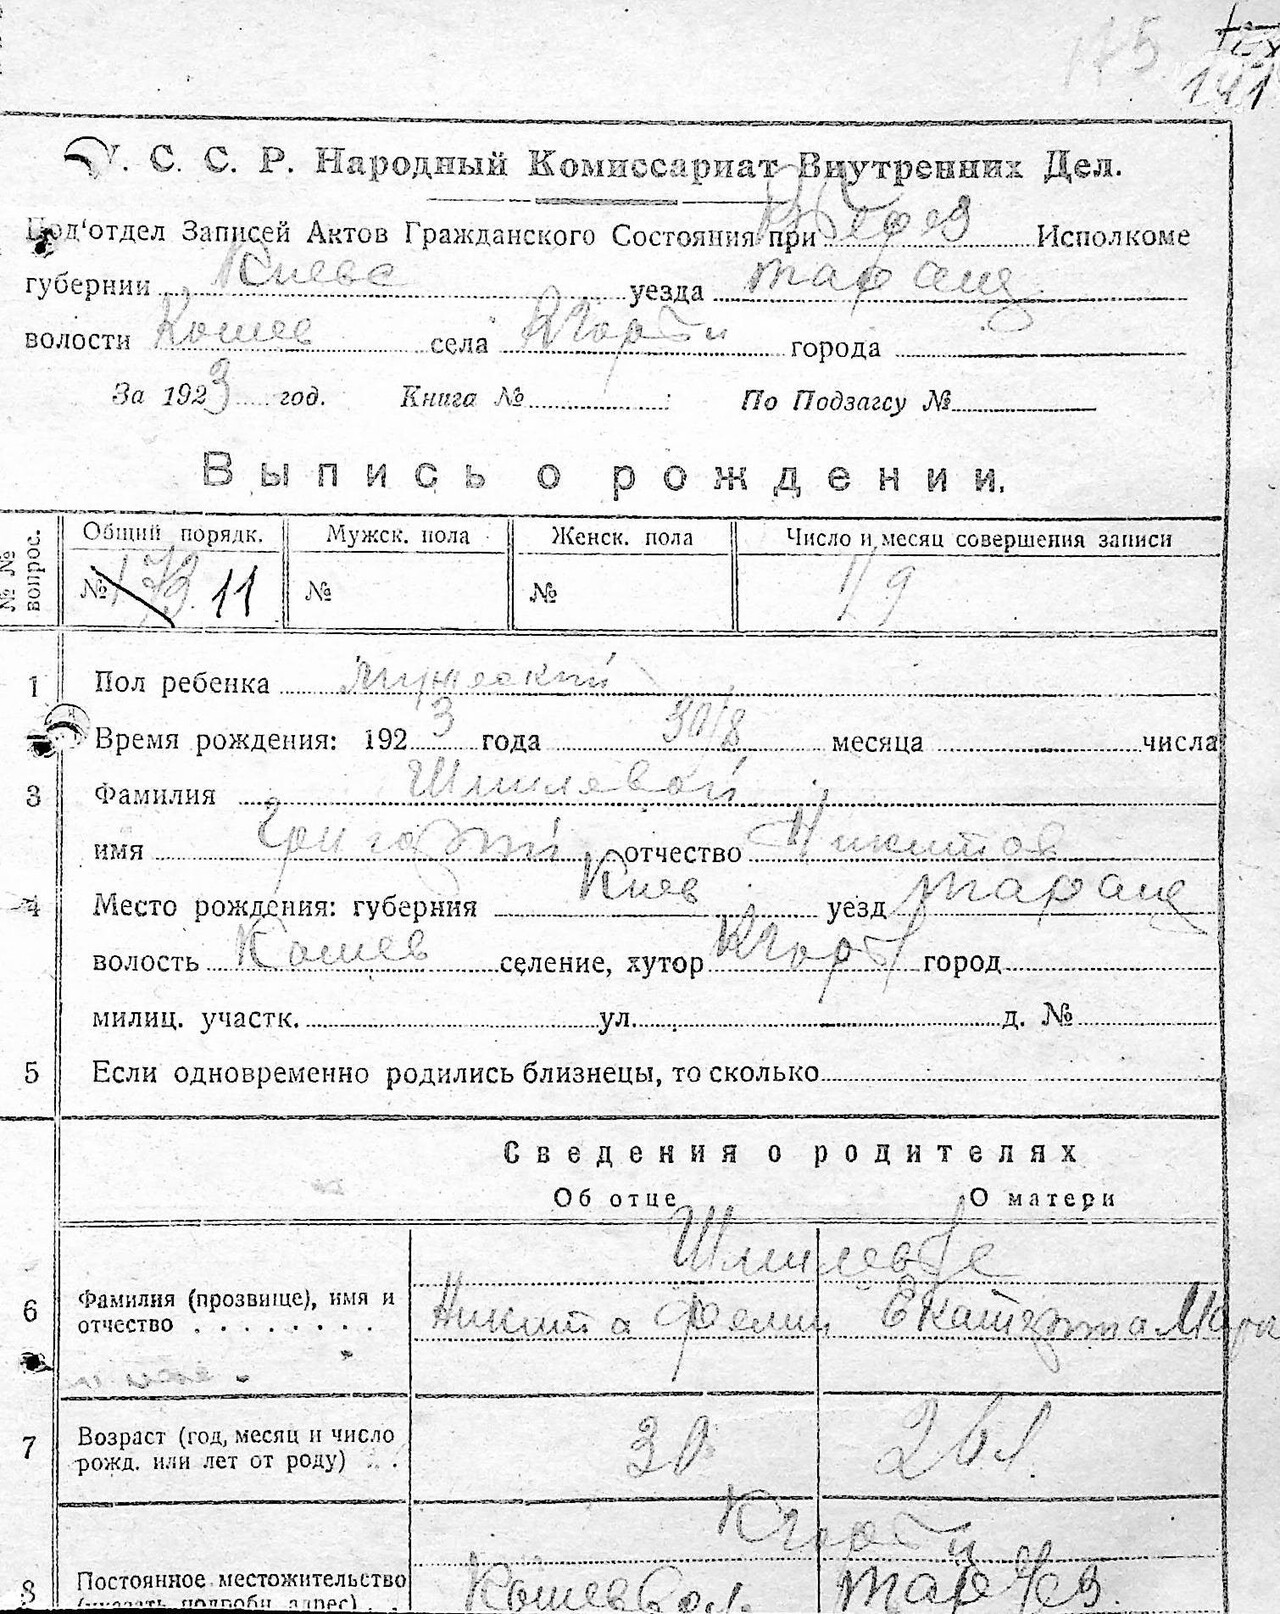 175
141
У. С. С. Р. Народный Комиссариат Внутренних Дел.
Под'отдел Записей Актов Гражданского Состояния при Исполкоме
губернии Киевс уезда таращ
волости Кошев села города
За 1923 год. Книга № По Подзагсу №
Выпись о рождении.
№№ вопрос. Общий порядк. Мужск. пола Женск. пола Число и месяц совершения записи
№ 173. 11 № № 1/9
1 Пол ребенка мужеский
Время рождения: 1923 года 30/8 месяца числа
3 Фамилия
имя отчество Никитов
4 Место рождения: губерния Киев уезд таращ
волость Кошев селение, хутор город
милиц. участк. ул. д. №
5 Если одновременно родились близнецы, то сколько
Сведения о родителях
Об отце О матери
6 Фамилия (прозвище), имя и
отчество Никита Екатерина
7 Возраст (год, месяц и число
рожд. или лет от роду) 30 26 л.
8 Постоянное местожительство Кошев вол.
(указать подробн. адрес)